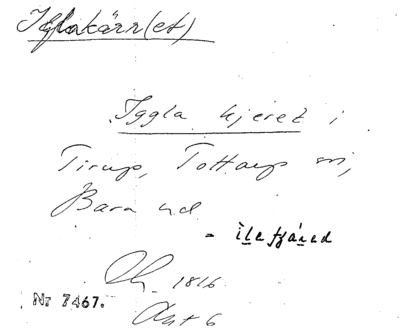 Iglakärr(et)
Iggla kjeret i
Tirup, Tottarp sn,
Bara hd
1816
Nr 7467.
Akt 6